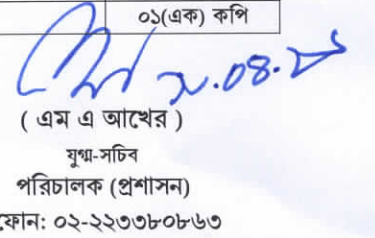 ০১(এক) কপি
( এম এ আখের )
যুগ্ম-সচিব
পরিচালক (প্রশাসন)
ফোন: ০২-২২৩৩৮০৮৬৩